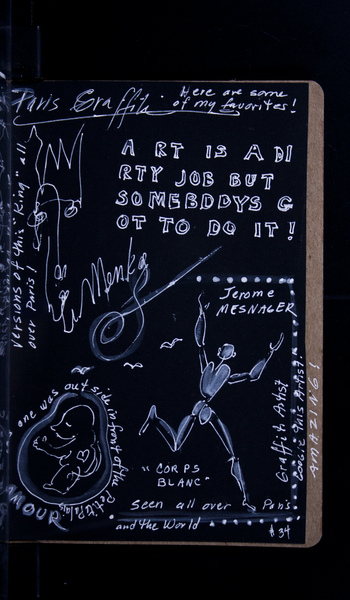 Paris Graffiti:
Here are some
of my favorites!
versions of this "King" all
over Paris!
A RT IS A DI
RTY JOB BUT
SOMEBDDYS G
OT TO DO IT!
Menka
Jerome
MESNAGER
Graffiti Artist
Google this Artist.
AMAZING!
one was outside in front of the Petit Palais
AMOUR
"CORPS
BLANC"
Seen all over Paris.
and the World
#34